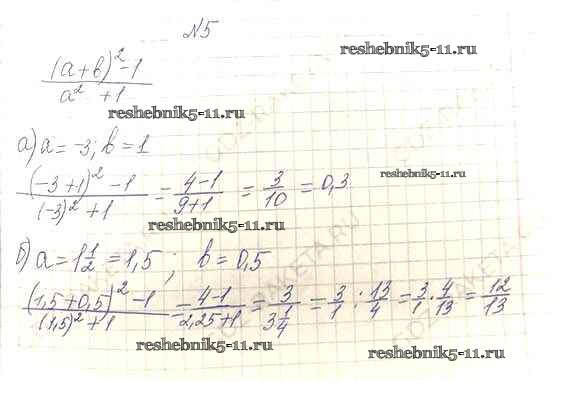 №5
reshebnik5-11.ru
(a+b)² -1 / a² +1
reshebnik5-11.ru
а) a = -3; b = 1
(-3+1)² -1 / (-3)² +1 = 4-1 / 9+1 = 3/10 = 0,3
reshebnik5-11.ru
reshebnik5-11.ru
б) a = 1 1/2 = 1,5 ; b = 0,5
(1,5+0,5)² -1 / (1,5)² +1 = 4-1 / 2,25+1 = 3 / 3 1/4 = 3/1 : 13/4 = 3/1 · 4/13 = 12/13
reshebnik5-11.ru
reshebnik5-11.ru